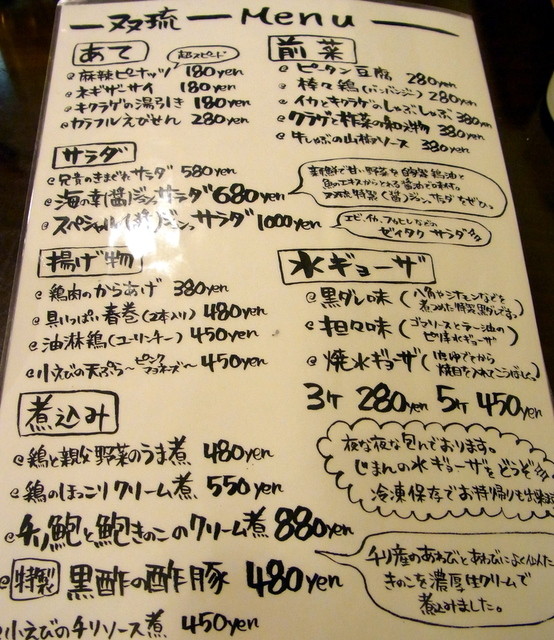 双琉 Menu
あて
超スピード
麻辣ピーナッツ 180yen
ネギザーサイ 180yen
キクラゲの湯引き 180yen
カラフルえびせん 280yen
前菜
ピータン豆腐 280yen
棒々鶏(バンバンジー) 280yen
イカとキクラゲのしゃぶしゃぶ 380yen
クラゲと 380yen
牛しゃぶの山椒ソース 380yen
サラダ
兄貴のきまぐれサラダ 580yen
海の幸(醤)ジャンサラダ 680yen
スペシャル(醤)ジャンサラダ 1000yen
新鮮で甘い野菜を 鶏油と
魚のエキスからとれる醤油で味付。
特製(醤)ジャンサラダ ぜひ。
エビ、イカ、
ゼイタクサラダ
揚げ物
鶏肉のからあげ 380yen
具いっぱい春巻(2本入り) 480yen
油淋鶏(ユーリンチー) 450yen
小えびの天ぷら〜ピンクマヨネーズ〜 450yen
水ギョーザ
黒ダレ味(八角やシナモンなどを煮つめた特製黒ダレです。)
担々味(ゴマソースとラー油のピリ辛水ギョーザ)
焼水ギョーザ(焼目を入れてこうばしく。)
3ケ 280yen 5ケ 450yen
夜な夜な包んでおります。
じまんの水ギョーザをどうぞ
冷凍保存でお持帰りも出来ます
煮込み
鶏と親父な野菜のうま煮 480yen
鶏のほっこりクリーム煮 550yen
チリ鮑と鮑きのこのクリーム煮 880yen
特製 黒酢の酢豚 480yen
小えびのチリソース煮 450yen
チリ産のあわびとあわびによく似た
きのこを濃厚生クリームで
煮込みました。